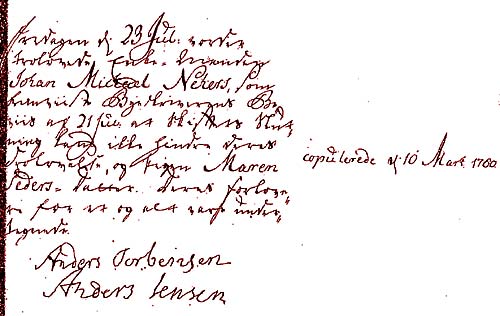 Fredagen d. 23 Jul: worder
trolovede Enke-Manden
Johan Michael Nehers, som
fremviiste Byeskriverens Be-
viis af 21 Jul. at Skiftes Slut-
ning kand ikke hindre deres
trolovelse, og Pigen Maren
Peders-Datter. Deres forlove-
re for et og alt vare under-
tegnede.
copulerede d. 10 Mart. 1780
Anders Torbensen
Anders Jensen